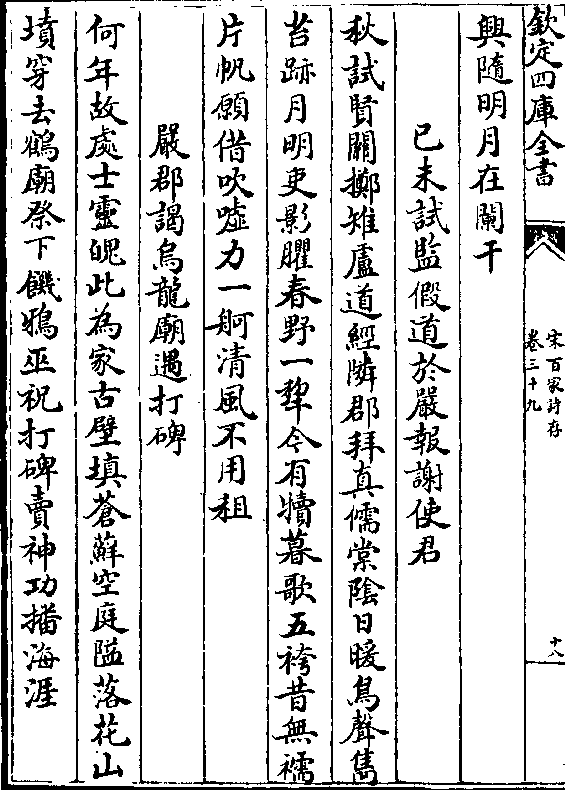 欽定四庫全書
宋百家詩存
卷三十九
十八
興隨明月在闌干
已未試監假道於嚴報謝使君
秋試賢關擲雉盧道經隣郡拜真儒棠隂日暖鳥聲雋
苔跡月明吏影臞春野一犂今有犢暮歌五袴昔無襦
片帆願借吹噓力一舸清風不用租
嚴郡謁烏龍廟遇打碑
何年故處士靈魄此為家古壁填蒼蘚空庭隘落花山
墳穿去鶴廟祭下饑鴉巫祝打碑賣神功播海涯